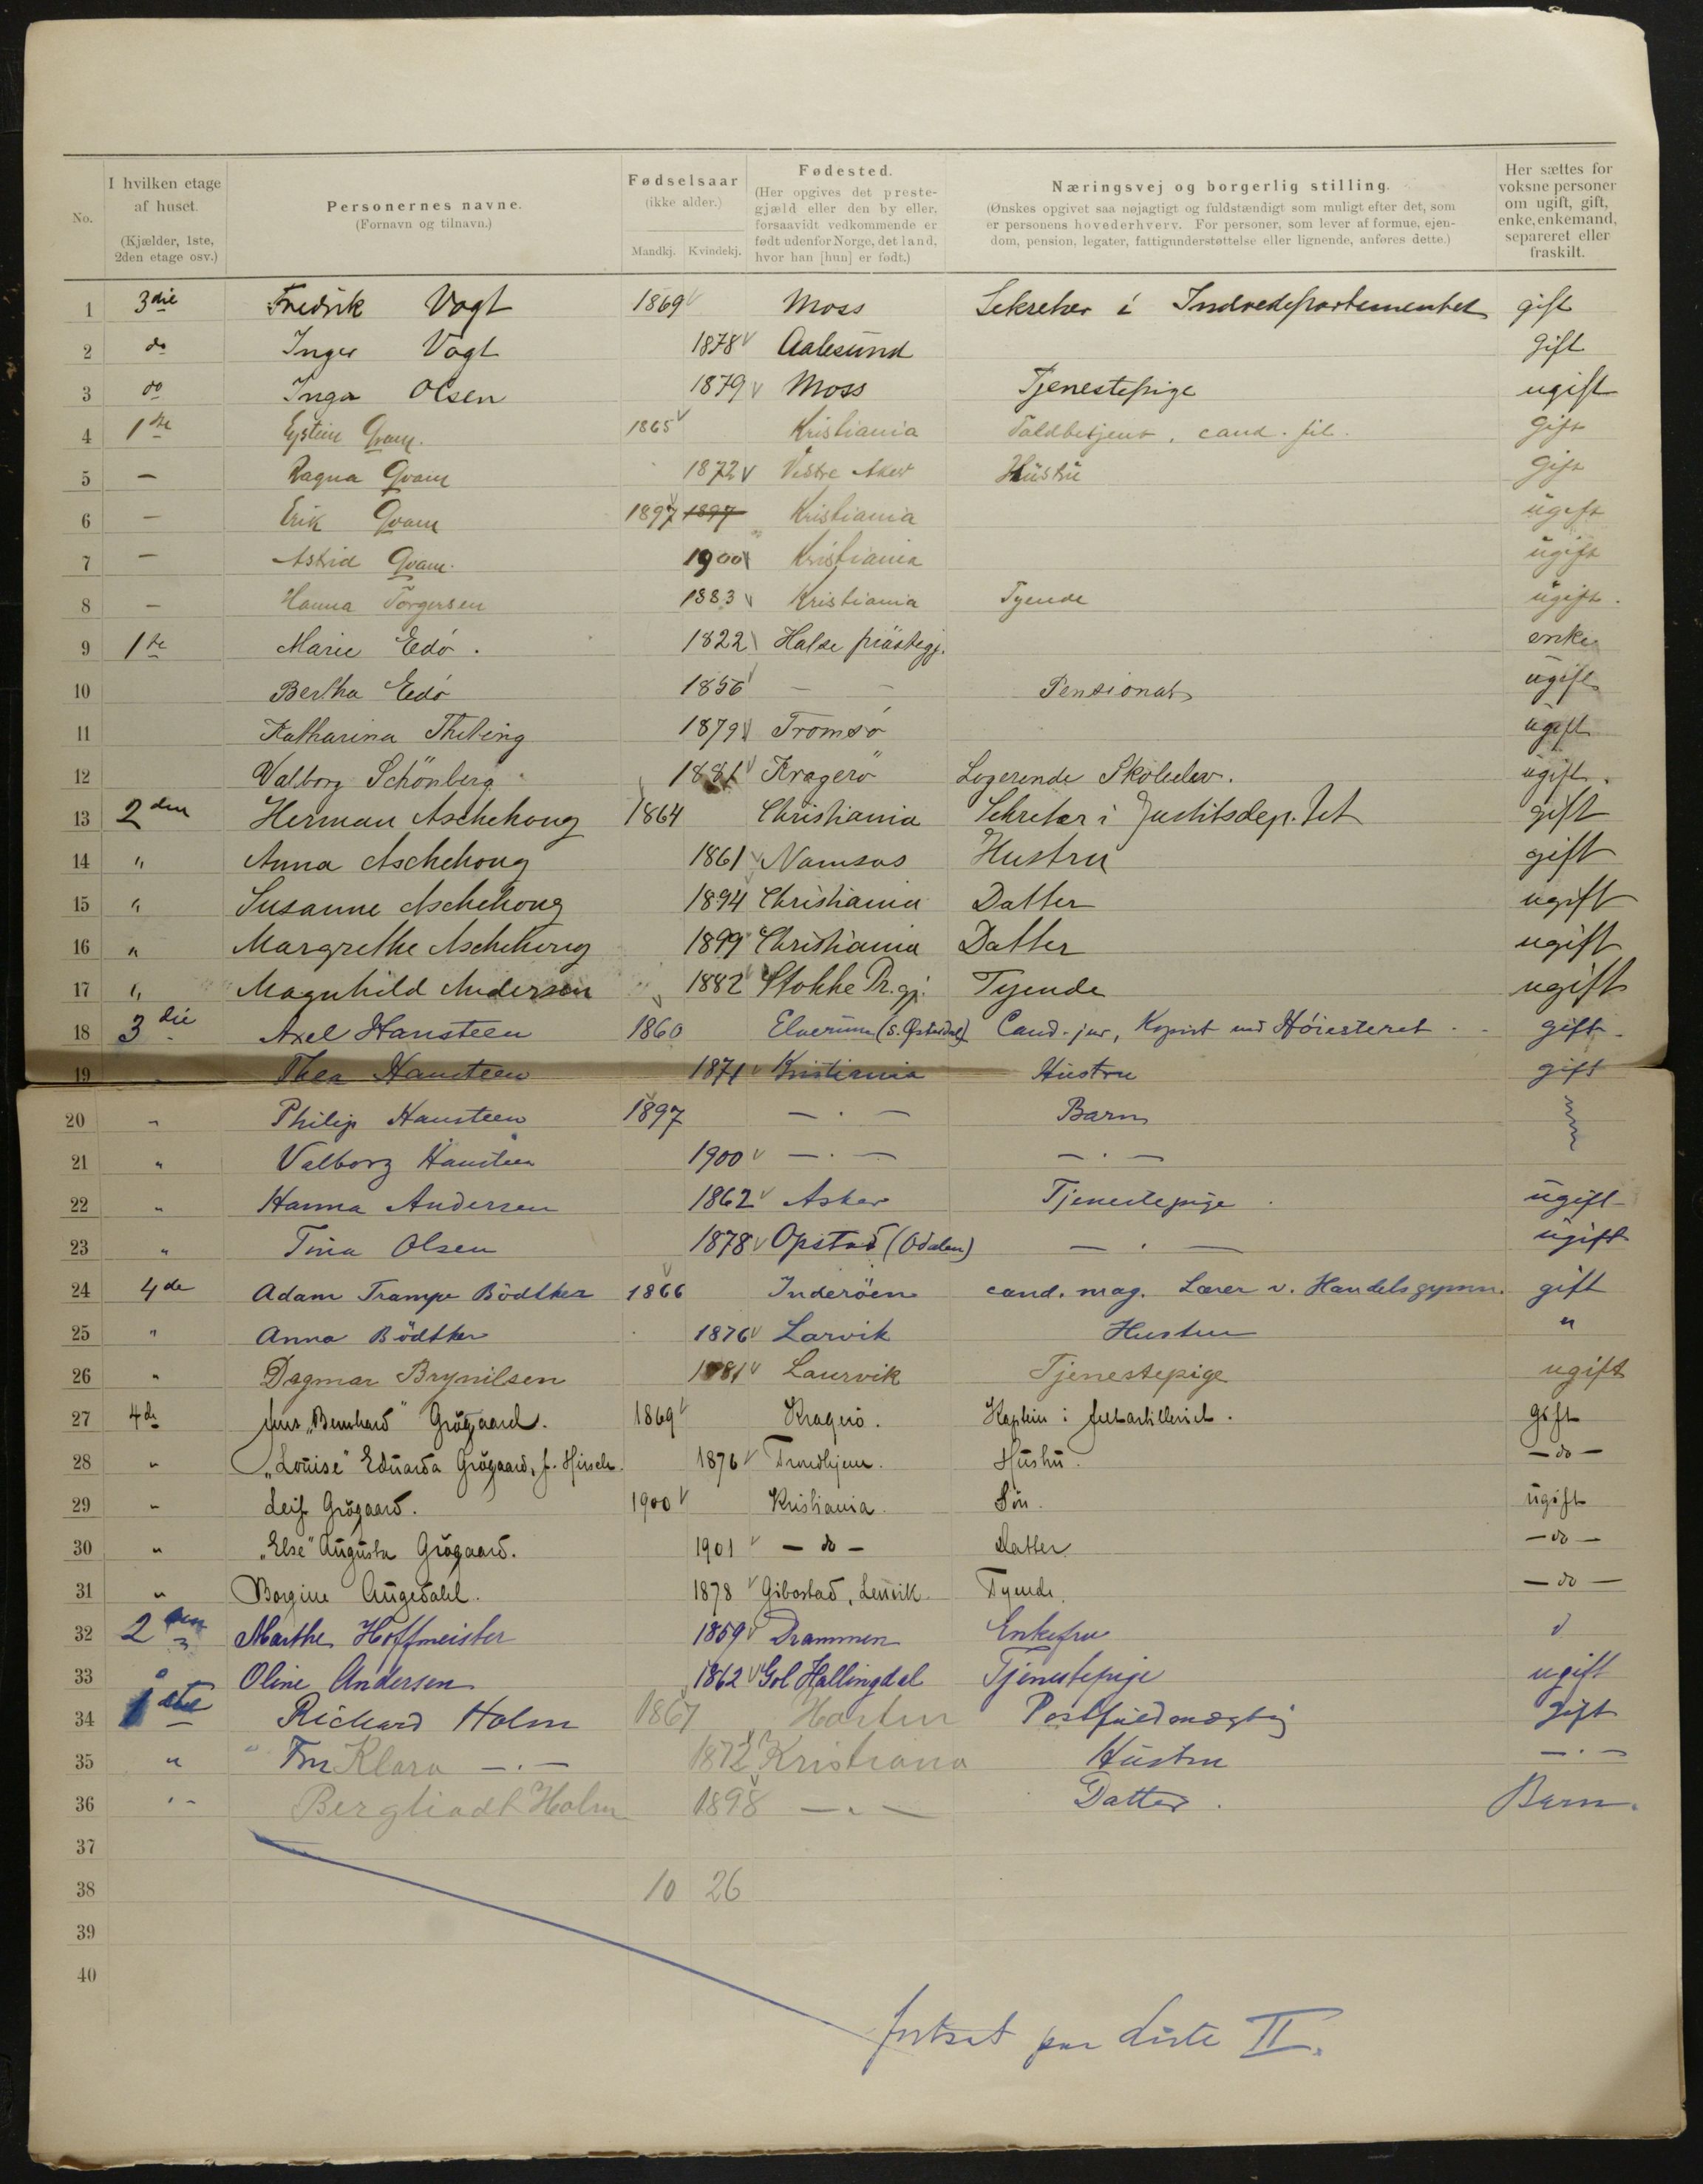 No.
I hvilken etage af huset. (Kjælder, 1ste, 2den etage osv.)
Personernes navne. (Fornavn og tilnavn.)
Fødselsaar (ikke alder.) Mandkj. Kvindekj.
Fødested. (Her opgives det prestegjæld eller den by eller, forsaavidt vedkommende er født udenfor Norge, det land, hvor han [hun] er født.)
Næringsvej og borgerlig stilling. (Ønskes opgivet saa nøjagtigt og fuldstændigt som muligt efter det, som er personens hovederhverv. For personer, som lever af formue, ejendom, pension, legater, fattigunderstøttelse eller lignende, anføres dette.)
Her sættes for voksne personer om ugift, gift, enke, enkemand, separeret eller fraskilt.
1 3die Fredrik Vogt 1869 Moss Sekretær i Indredepartementet gift
2 do Inger Vogt 1878 Aalesund gift
3 do Inga Olsen 1879 Moss Tjenestepige ugift
4 1ste Eystein Qvam. 1865 Kristiania Toldbetjent, cand. fil. gift
5 — Ragna Qvam 1872 Vestre Aker Hustru gift
6 — Erik Qvam 1897 1897 Kristiania ugift
7 — Astrid Qvam. 1900 Kristiania ugift
8 — Hanna Torgersen 1883 Kristiania Tyende ugift.
9 1ste Marie Eedó. 1822 Halse præstegj. enke
10 Bertha Eedó 1856 — — Pensionat ugift
11 Katharina 1879 Tromsø ugift
12 Valborg Schönberg 1881 Kragerö Logerende Skoleelev. ugift.
13 2den Herman Aschehoug 1864 Christiania Sekretær i Justitsdep.tet gift
14 " Anna Aschehoug 1861 Namsos Hustru gift
15 " Susanne Aschehoug 1894 Christiania Datter ugift
16 " Margrethe Aschehoug 1899 Christiania Datter ugift
17 " Magnhild Andersen 1882 Stokke Pr.gj. Tyende ugift
18 3die Axel Hansteen 1860 Elverum (S. Østerdal) Cand. jur, Kopist ved Höiesteret gift
19 Thea Hansteen 1871 Kristiania Hustru gift
20 " Philip Hansteen 1897 — . — Barn
21 " Valborg Hansteen 1900 — . — — . —
22 " Hanna Andersen 1862 Asker Tjenestepige ugift
23 " Tina Olsen 1878 Opstad (Odalen) — . — ugift
24 4de Adam Trampe Bödtker 1866 Inderöen cand. mag. Lærer v. Handelsgymn. gift
25 " Anna Bödtker 1876 Larvik Hustru "
26 " Dagmar Brynilsen 1881 Laurvik Tjenestepige ugift
27 4de Jens "Bernhard" Grögaard. 1869 Kragerö. Kaptein i feltartilleriet. gift
28 " "Louise" Eduarda Grögaard, f. Hirsch. 1876 Trondhjem. Hustru. — do —
29 " Leif Grögaard. 1900 Kristiania. Sön. ugift
30 " "Else" Augusta Grögaard. 1901 — do — Datter. — do —
31 " Borgine Angedahl. 1878 Gibostad, Lenvik Tyende. — do —
32 2den Marthe Hoffmeister 1859 Drammen Enkefru
33 Oline Andersen 1862 Gol Hallingdal Tjenestepige ugift
34 1ste Richard Holm 1867 Horten Postfuldmægtig gift
35 " Fru Klara — . — 1872 Kristiana Hustru — . —
36 " Bergliodt Holm 1898 — . — Datter. Barn.
37
38 10 26
39
40
fortsat paa Liste II.